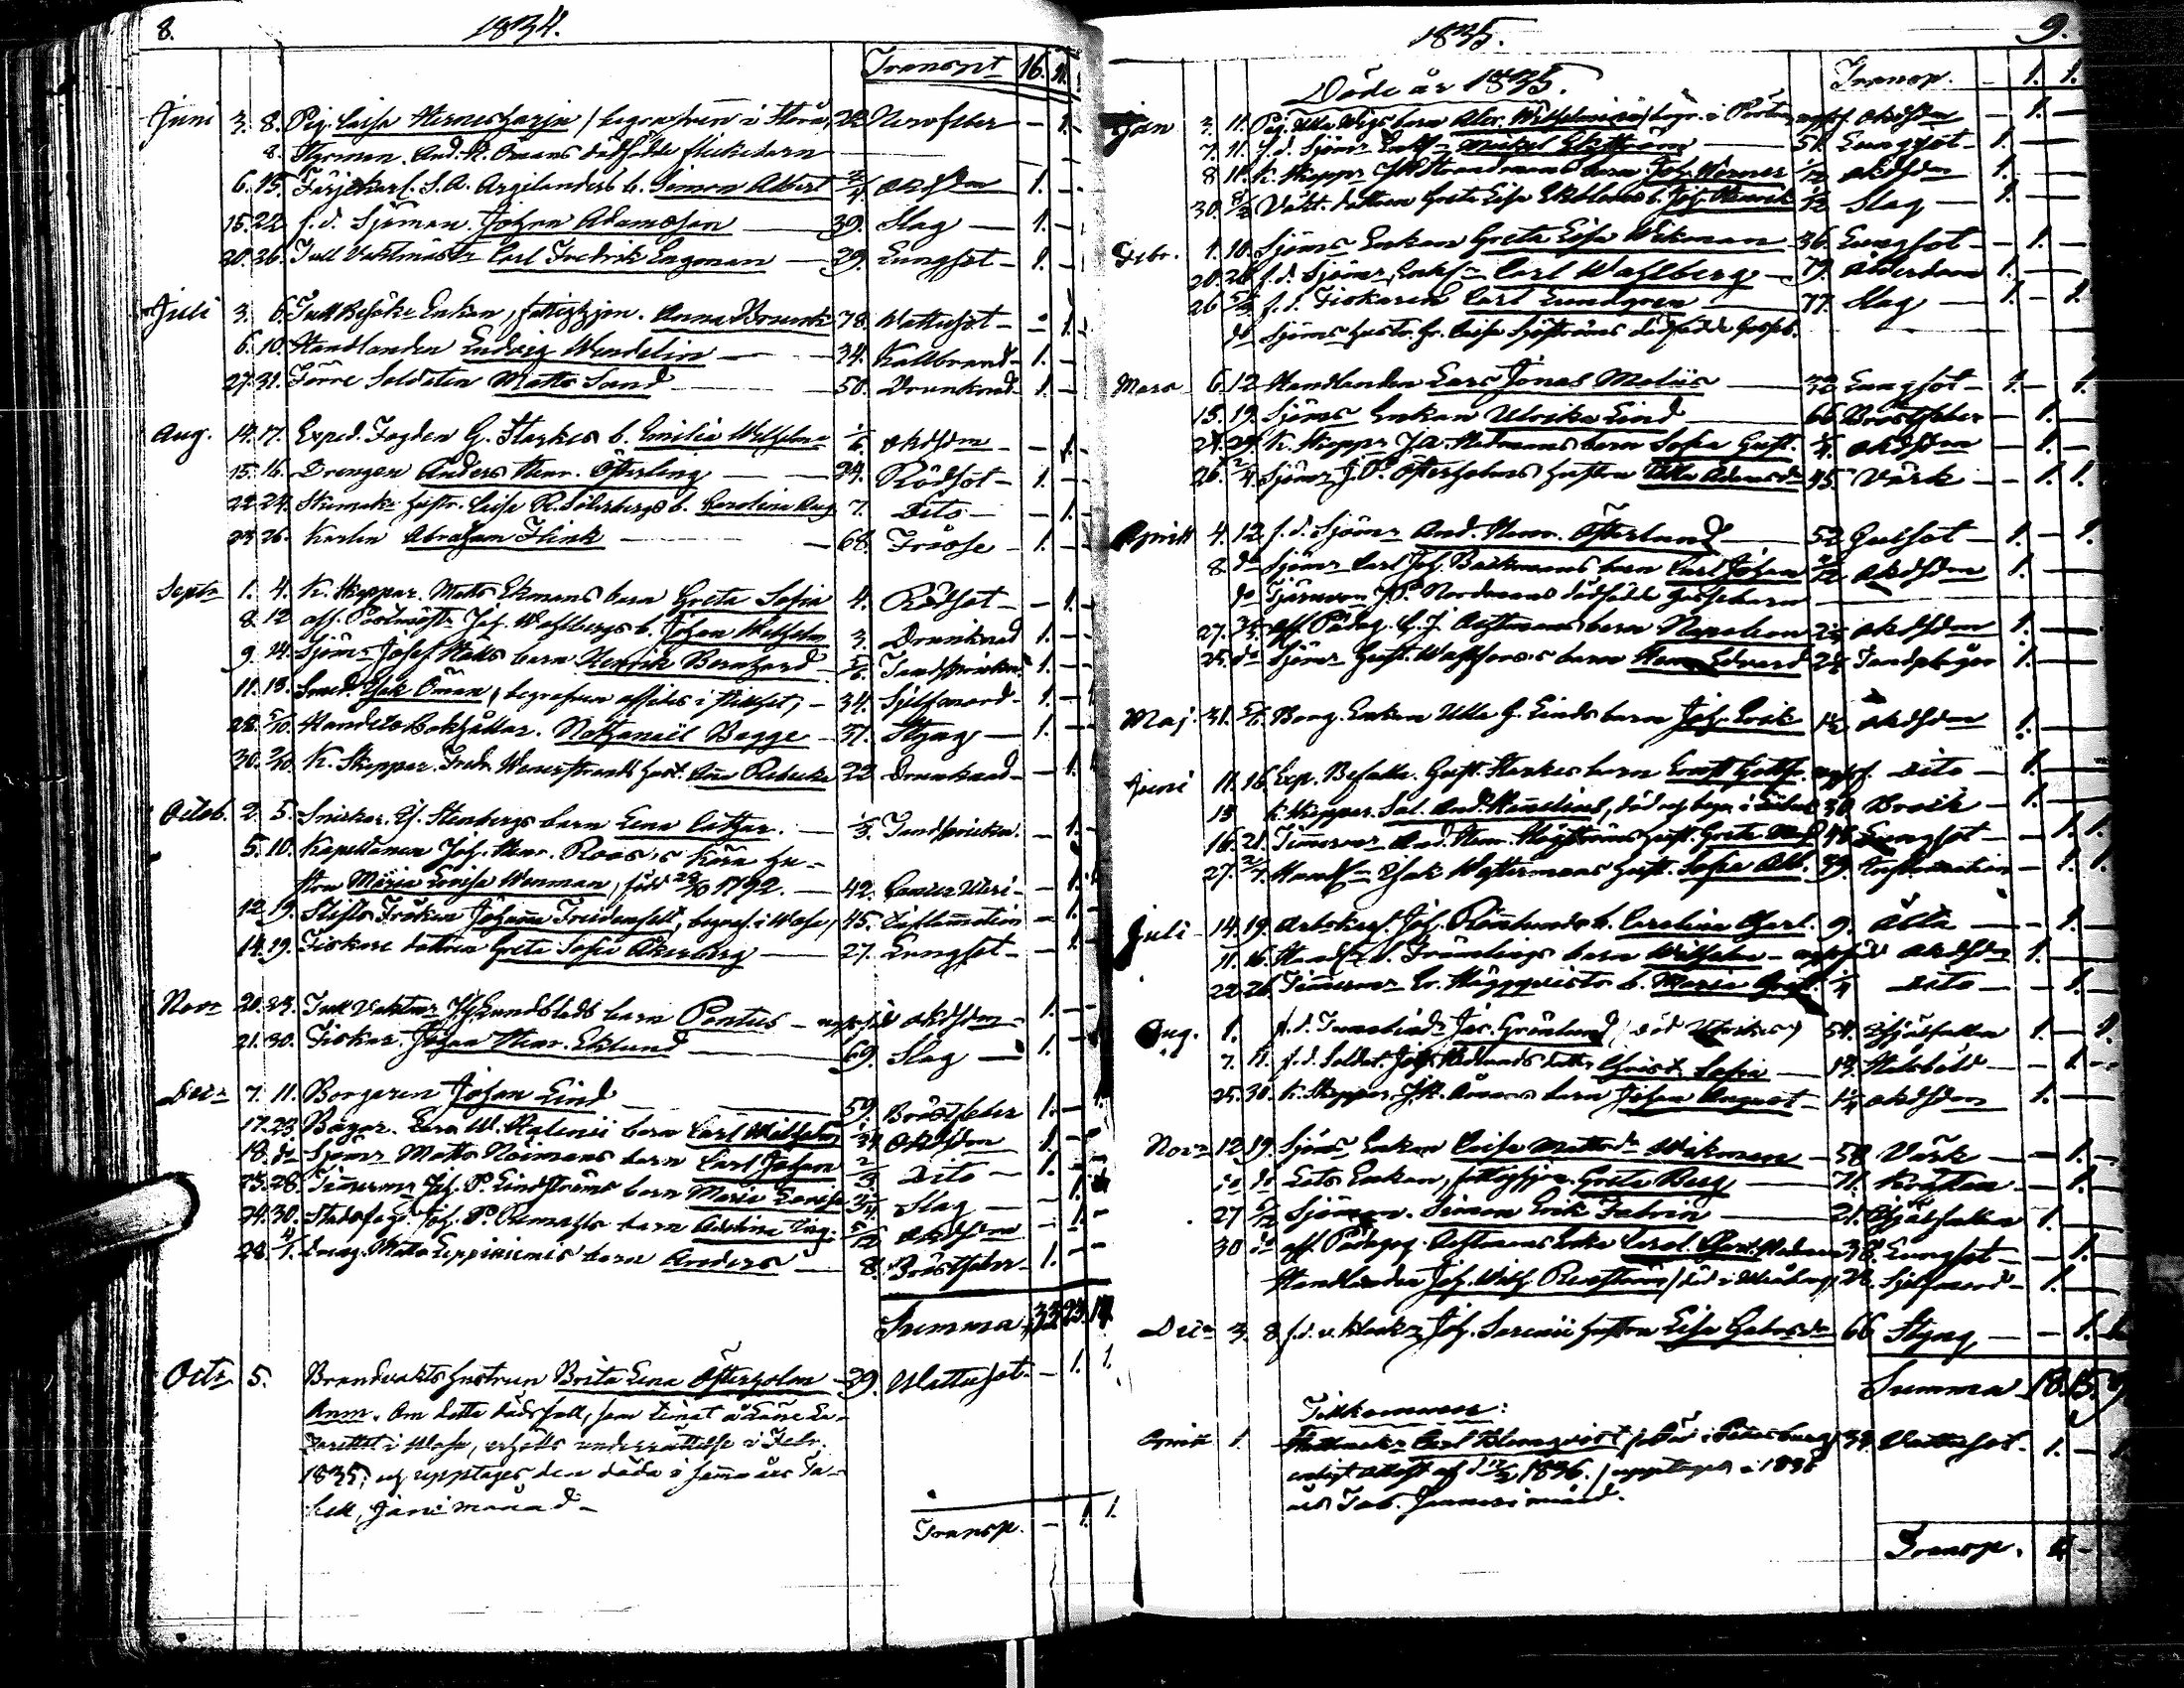 8. 1834.
Transpt 16. 11.
Juni 3. 8. Pig. Caisa Hernesharju / begrafven i Storå, 22 Nervfeber - 1.
8. Styrman. And. H. Ömans dödfödde flickebarn
6. 15. Färjekarl. S. A. Argilanders b. Simon Albert 3/4 okdsdm 1. -
15. 22. f. d. Sjöman. Johan Adamsson 39. Slag - 1. -
20. 26. Tull Vaktmästr Carl Fredrik Engman 29. Lungsot - 1. -
Juli 3. 6. Tull Besök. Enkan, fattighjon. Anna Brunck 78. Wattusot - - 1.
6. 10. Handlanden Ludvig Wendelin 34. Kallbrand - 1. -
27. 31. Förre Soldaten Matts Sand 50. Drunknad - 1. -
Aug. 14. 17. Exped. Fogden G. Starkes b. Emilia Wilhelma 1/6 okdsdm - 1.
15. 16. Drengen Anders Henr. Österling 24. Rödsot - 1. -
22. 24. Skomak. hustr. Caisa R. Söderbergs b. Carolina Aug. 7. Dito - 1.
23. 26. Karlen Abraham Flink 68. Frosse - 1. -
Septr 1. 4. K. Skeppar. Matts Ekmans barn Greta Sofia 4. Rödsot - - 1.
8. 12 aff. Postmästr Joh. Wahlbergs b. Johan Wilhelm 3. Drunknad 1. -
9. 14. Sjömr Josef Matts barn Henrik Bernhard 5/6. Tandsprickn. 1. -
11. 13. Smed. Isak Öman, begrafven afsides i stillhet, - 34. Sjelfmord - 1. -
28. 5/10. Handels Bokhållar. Nathanaël Bagge - 37. Styng - 1. -
30. 2/10. K. Skeppar. Fredr. Wenerstrands hust. Ana Rebecka 22. Drunknad - - 1.
Octob. 2. 5. Snickar. Is. Stenbergs barn Lena Cathar. - 1/3. Tandsprickn. - 1.
5. 10. Kapellanen Joh. Henr. Roos's kära hu-
stru Maria Lovisa Wenman, född 23/10 1792. - 42. Cancer Uteri - - 1.
12. 19. Stifts Fröken Johanna Freidenfelt, begraf. i Wasa, 45. Inflammation - 1.
14. 19. Fiskare dottren Greta Sofia Åkerberg 27. Lungsot - - 1.
Novr 20. 23. Tull Vaktmr J. G. Lundsteds barn Pontus - nyss föd okdsdm - 1.
21. 30. Fiskar. Johan Henr. Eklund 69. Slag - 1.
Decr 7. 11. Borgaren Johan Lind 59. Bröstfeber 1. -
17. 23 Bagar. Carn W. Stalenii barn Carl Wilhelm 3/4 okdsdm 1. -
18. do Sjömr Matts Nöimans barn Carl Johan 2/3 Dito - 1. -
25. 28. Timermr Joh. P. Lindströms barn Maria Lovisa 2 1/4 Slag - - 1.
24. 30. Stadsfogd. Joh. P. barn Adolina Aug. 5/12 okdsdm - 1.
28. 4/1. Dreng. Matts Leppiniemis barn Anders 8. Bröstfeber - 1. -
Summa 32. 23. 14.
Octr 5. Brandvakts hustrun Brita Lena Österholm 39. Wattusot - 1. 1.
Anm. Om detta dödsfall, som timat å Läns La-
zarettet i Wasa, erhölls underrättelse i Febr.
1835; och upptages den döda i samma års Ta-
bell, Janri månad -
Transp. - 1. 1.
1835. 9.
Transp. - 1. 1.
Döde år 1835.
Jan 3. 11. Pig. Ulla Wigs barn Alex. Wilhelmina, begr. i Pörtom, nyssf. okdsdm - 1. -
7. 11. f. d. Sjömr Enkl. Mickel Elfström 51. Lungsot - 1. -
8. 11. K. Skeppr Strandmans barn Joh. Werner 1/12 okdsdm 1. -
30. 8/2 Vakt. dottren Greta Lisa Ekbloms b. Joh. Henrik 1/12 Slag - 1. -
Febr. 1. 10. Sjöms Enkan Greta Lisa Wikman 36. Lungsot - - 1.
20. 26. f. d. Sjömr Enkl. Carl Wahlberg 79. ålderdom 1. -
26 5/3 f. d. Fiskaren Carl Lundgren 77. Slag - 1. - 1.
do Sjöms hustr. Gr. Caisa Sjöströms dödfödde Gosseb.
Mars 6. 12 Handlanden Lars Jonas Malüs 32 Lungsot - 1. - 1.
15. 19. Sjöms Enkan Ulrika Lind 66 Bröstfeber - 1.
24. 29. K. Skeppr J. A. Hedmans barn Sofia Gust. 1/4 okdsdm - 1. -
26. 2/4. Sjömr J. P. Österholms hustru Ulla Adamsdr 45. Värk - - 1. 1.
Aprill 4. 12. f. d. Sjömr And. Henr. Österlund 52 Gulsot - 1. - 1.
8. do Sjömr Carl Joh. Backmans barn Carl Johan 3/12 okdsdm 1. -
do Fjärman J. P. Nordmans dödfödde gossebarn
27. 3/5 aff. Pädag. C. J. Aejtmans barn Napoleon 2 1/4 okdsdm 1. -
25. do Sjömr Gust. Wasthors's barn Henr. Edvard 2 1/4 Tandplågor 1. -
Maj 31. 5/6. Borg. Enkan Ulla G. Linds barn Joh. Erik 1 1/2 okdsdm 1. -
Juni 11. 16. Exp. Befallr. Gust. Starkes barn Ernst Gottfr. nyssf. Dito - 1. -
13 K. Skeppar. Sal. And. Hemelius, död och begr. i Lübec 30 Bråck - 1. -
16. 21. Timermr And. Henr. Högströms hust. Greta 48 Lungsot - - 1. 1.
27. 2/7. Handl. Isak Westermans hust. Sofia Alb. 39. Inflamation - 1. 1.
Juli 14. 19. Arbetskarl. Joh. Rönnlunds b. Carolina Charl. 9. Ålta - - 1.
11. 16. Handl. C. Främlings barn Wilhelm - nyss föd okdsdm 1. -
22. 26. Timermr Er. Häggqvists b. Maria Gust. 1/4 Dito - - 1.
Aug. 1. f. d. Jac. Grönlund (död i ) 54. Slagfallen 1. - 1.
7. 11. f. d. Soldat. Joh. Hedlunds dottr Christ. Sofia 13. Halsböld - - 1. -
25. 30. K. Skeppar. J. H. Ömans barn Johan August 1 1/4 okdsdm 1. -
Novr 12. 19. Sjöms Enkan Caisa Mattsdr Wikman 58 Värk - - 1. -
do do Lots Enkan, fattighjon. Greta Berg 71. Kräftan - - 1.
27 5/12 Sjöman. Simon Erik Falvin 21. 1. -
30 do aff. Pädagog. Aejtmans Enka Carol. Charl. Hedman 38. Lungsot - - 1.
Handlanden Joh. Wilh. (död i Uleåborg) 28. Sjelfmord - 1.
Decr 3. 8. f. d. v. Klock. Joh. Sarenii hustru Lisa Gabrsdr 66 Styng - - 1. 1.
Summa 18. 15. 9
Tillkommer:
Aprill 1. Hattmakr Carl Blomqvist (död i Petersburg) 34. Vattusot - 1. - 1.
enligt attest af d 12/2 1836. / upptages i 1836
års Tab. Januari månad.
Transp. 1. -